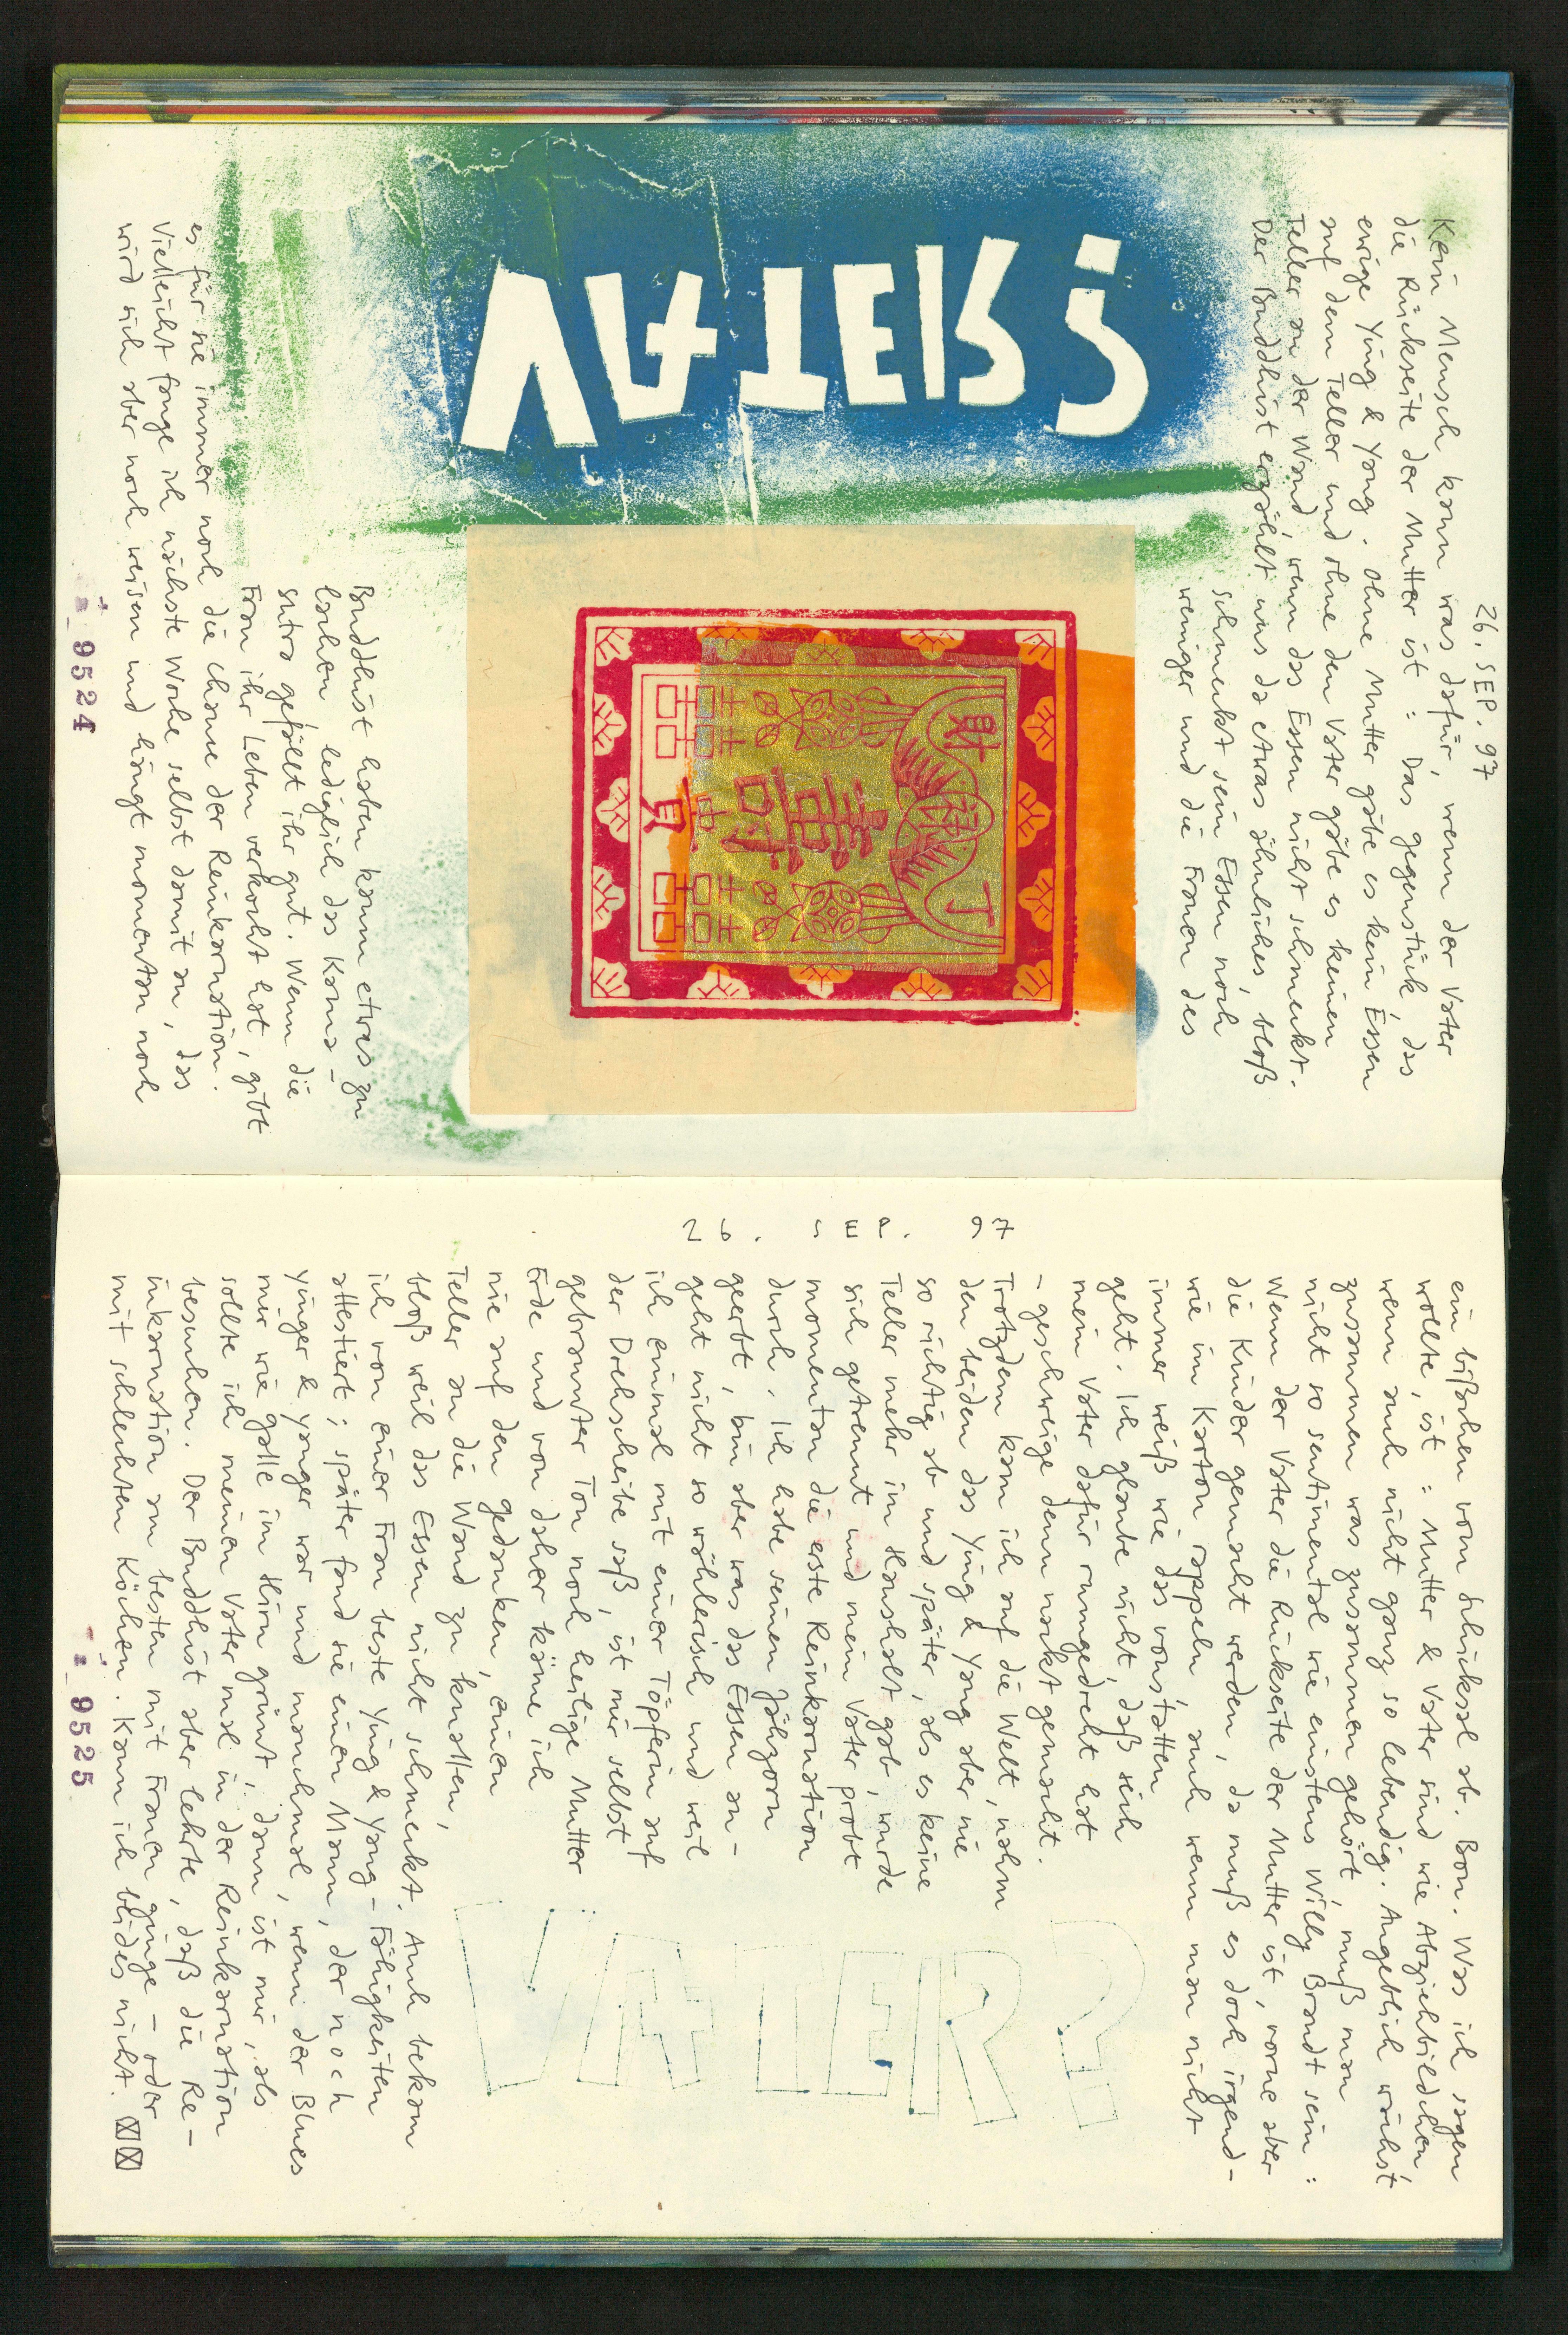 26. SEP. 97
Kein Mensch kann was dafür, wenn der Vater
die Rückseite der Mutter ist : Das Gegenstück, das
ewige Ying & Yang. Ohne Mutter gäbe es kein Essen
auf dem Teller und ohne den Vater gäbe es keinen
Teller an der Wand, wenn das Essen nicht schmeckt.
Der Buddhist erzählt uns da etwas ähnliches, bloß
schmeckt sein Essen noch
weniger und die Frauen des
VATER?
財
丁
壽
貴
Buddhist haben kaum etwas zu
lachen, lediglich das Kama-
sutra gefällt ihr gut. Wenn die
Frau ihr Leben verkocht hat, gibt
es für sie immer noch die Chance der Reinkarnation.
Vielleicht fange ich nächste Woche selbst damit an, das
wird sich aber noch weisen und hängt momentan noch
9524
26. SEP. 97
ein bißchen vom Schicksal ab. Bon. Was ich sagen
wollte, ist : Mutter & Vater sind wie Abziehbildchen,
wenn auch nicht ganz so lebendig. Angeblich wächst
zusammen was zusammen gehört, muß man
nicht so sentimental wie einstens Willy Brandt sein :
Wenn der Vater die Rückseite der Mutter ist, vorne aber
die Kinder gemacht werden, da muß es doch irgend-
wie im Karton rappeln, auch wenn man nicht
immer weiß wie das vonstatten
geht. Ich glaube nicht, daß sich
mein Vater dafür rumgedreht hat
- geschweige denn nackt gemacht.
Trotzdem kam ich auf die Welt, nahm
den beiden das Ying & Yang aber nie
so richtig ab und später, als es keine
Teller mehr im Haushalt gab, wurde
sich getrennt und mein Vater probt
momentan die erste Reinkarnation
durch. Ich habe seinen Jähzorn
geerbt, bin aber was das Essen an-
geht nicht so wählerisch und weil
ich einmal mit einer Töpferin auf
der Drehscheibe saß, ist mir selbst
gebrannter Ton noch heilige Mutter
Erde und von daher käme ich
nie auf den Gedanken, einen
Teller an die Wand zu knallen,
bloß weil das Essen nicht schmeckt. Auch bekam
ich von einer Frau beste Ying & Yang-Fähigkeiten
attestiert; später fand sie einen Mann, der noch
yinger & yanger war und manchmal, wenn der Blues
mir wie Galle im Hirn grünt, dann ist mir, als
sollte ich meinen Vater mal in der Reinkarnation
besuchen. Der Buddhist aber lehrte, daß die Re-
inkarnation am besten mit Frauen ginge - oder
mit schlechten Köchen. Kann ich beides nicht.
VATER?
9525